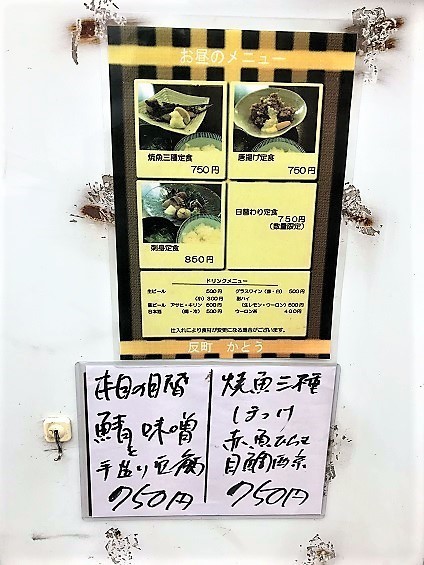 お昼のメニュー
焼魚三種定食
750円
唐揚げ定食
750円
刺身定食
850円
日替わり定食
750円
(数量限定)
ドリンクメニュー
生ビール 500円
(小) 300円
瓶ビール アサヒ・キリン 600円
日本酒 (燗・冷) 500円
グラスワイン (赤・白) 500円
酎ハイ
(生レモン・ウーロン) 500円
ウーロン茶 400円
仕入れにより食材が変更になる場合がございます。
反町 かとう
本日の日替
鯖味噌
と
手造り豆腐
750円
焼魚三種
ほっけ
赤魚
目鯛西京
750円